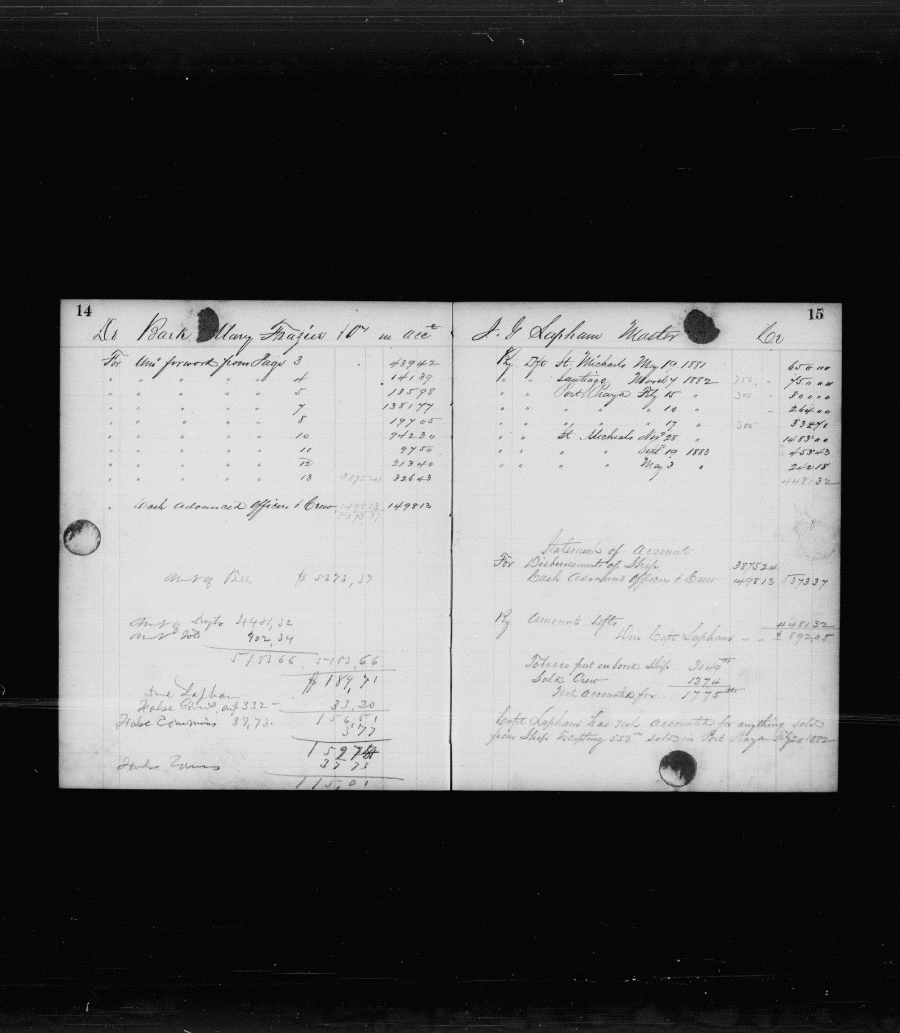 14
Dr Bark Mary Frazier & Ors in acct
For Am't forward from Page 3 439 42
" " " " " 4 141 39
" " " " " 5 135 98
" " " " " 7 1381 77
" " " " " 8 197 05
" " " " " 10 942 30
" " " " " 11 97 50
" " " " " 12 213 40
" " " " " 13 3875 24 326 43
" Cash Advanced Officers & Crew 1498 13
Am't of Bill $ 5373,37
Am't of Drafts 4481,32
Am't Sold 702,34
5183 66 5183,66
$ 189,71
Due Lapham
False Com on 332 — 33,20
156,51
False Commins 37,73. 377
37 73
115,01
15
J. G Lapham Master Cr
By Dft St Michaels May 19 1881 650 00
" " Santiago March 7 1882 750 00
" " Port Praya Feby 15 " 300 00
" " " " " 10 " 264 00
" " " " " 17 "
" " St. Michaels Nov 28 " 1483 00
" " " " Sept 19 1883 453 43
" " " " May 3 " 242 18
4481 32
Statement of Account
For Disbursement of Ship 3875 24
Cash Advanced Officers & Crew 1498 13 5373 37
By Amount Dfts 4481 32
Due Capt Lapham " " $ 892,05
Tobacco put on board Ship 3149 lbs
Sold Crew 1374
Not Accounted for 1775 lbs
Capt Lapham has not accounted for anything sold
from Ship Excepting 553 sold in Port Praya Feby 20 1882